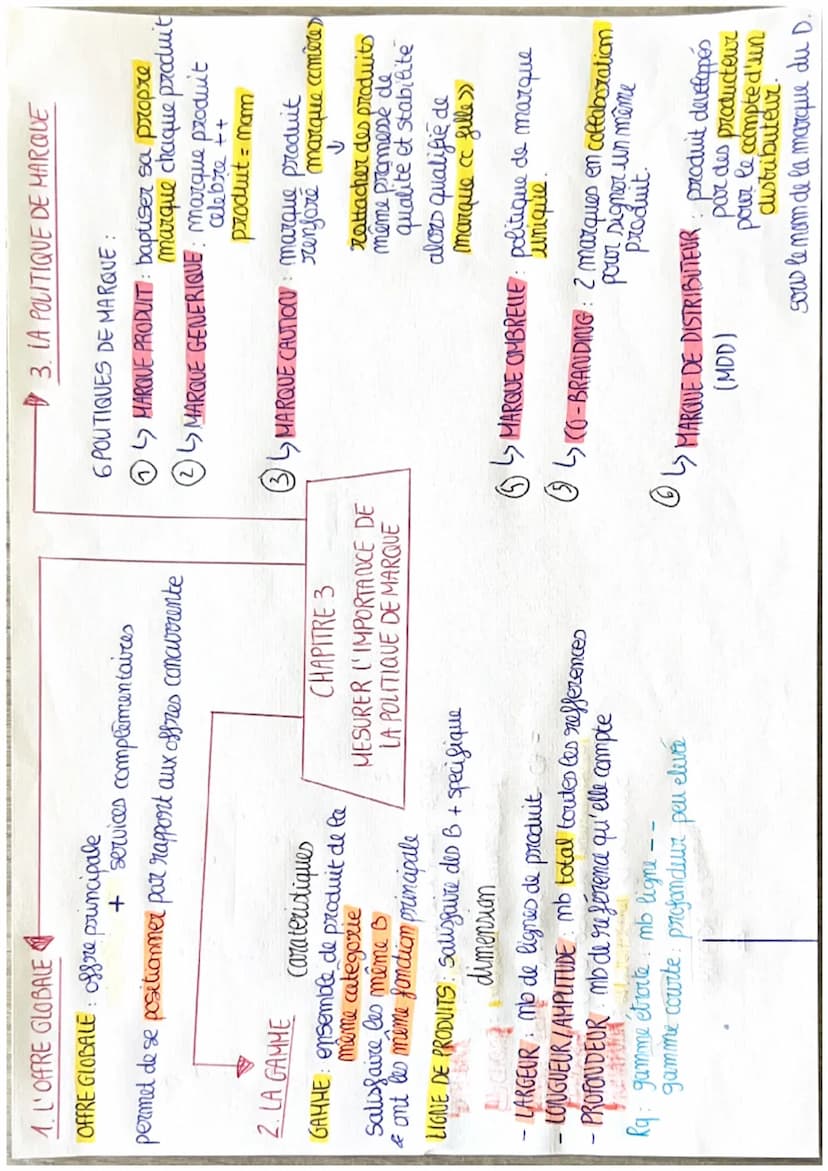 1. L'OFFRE GLOBALE
OFFRE GLOBALE : offre principale
+
services complémentaires
permet de se positionner par rapport aux offres concurrente
2. LA GAMME
caratéridiques
GAMME : ensemble de produit de la
même catégorie
satisfaire les même B
& ont les même fonction principale
LIGNE DE PRODUITS : satisfaire des B + spécifique
dimension
- LARGEUR : nb de lignes de produit
- LONGUEUR/AMPLITUDE : nb total toutes les références
- PROFONDEUR : nb de référence qu'elle compte
Rq : gamme étroite : nb ligne --
gamme courte : profondeur peu elevé
CHAPITRE 3
MESURER L'IMPORTANCE DE
LA POLITIQUE DE MARQUE
3. LA POLITIQUE DE MARQUE
6 POLITIQUES DE MARQUE :
① ↳ MARQUE PRODUIT : baptiser sa propre
marque chaque produit
② ↳ MARQUE GENERIQUE : marque produit
celebre ++
produit = nom
③ ↳ MARQUE CAUTION : marque produit
renforé marque «mère»
↓
rattacher des produits
même promesse de
qualité et stabilité
alors qualifié de
marque « fille »
↳ MARQUE OMBRELLE : politique de marque
unique.
⑤ ↳ CO-BRANDING : 2 marques en collaboration
pour signer un même
produit.
⑥ ↳ MARQUE DE DISTRIBUTEUR : produit developpés
(MDD)
par des producteur
pour le compte d'un
distributeur.
sous le nom de la marque du D.